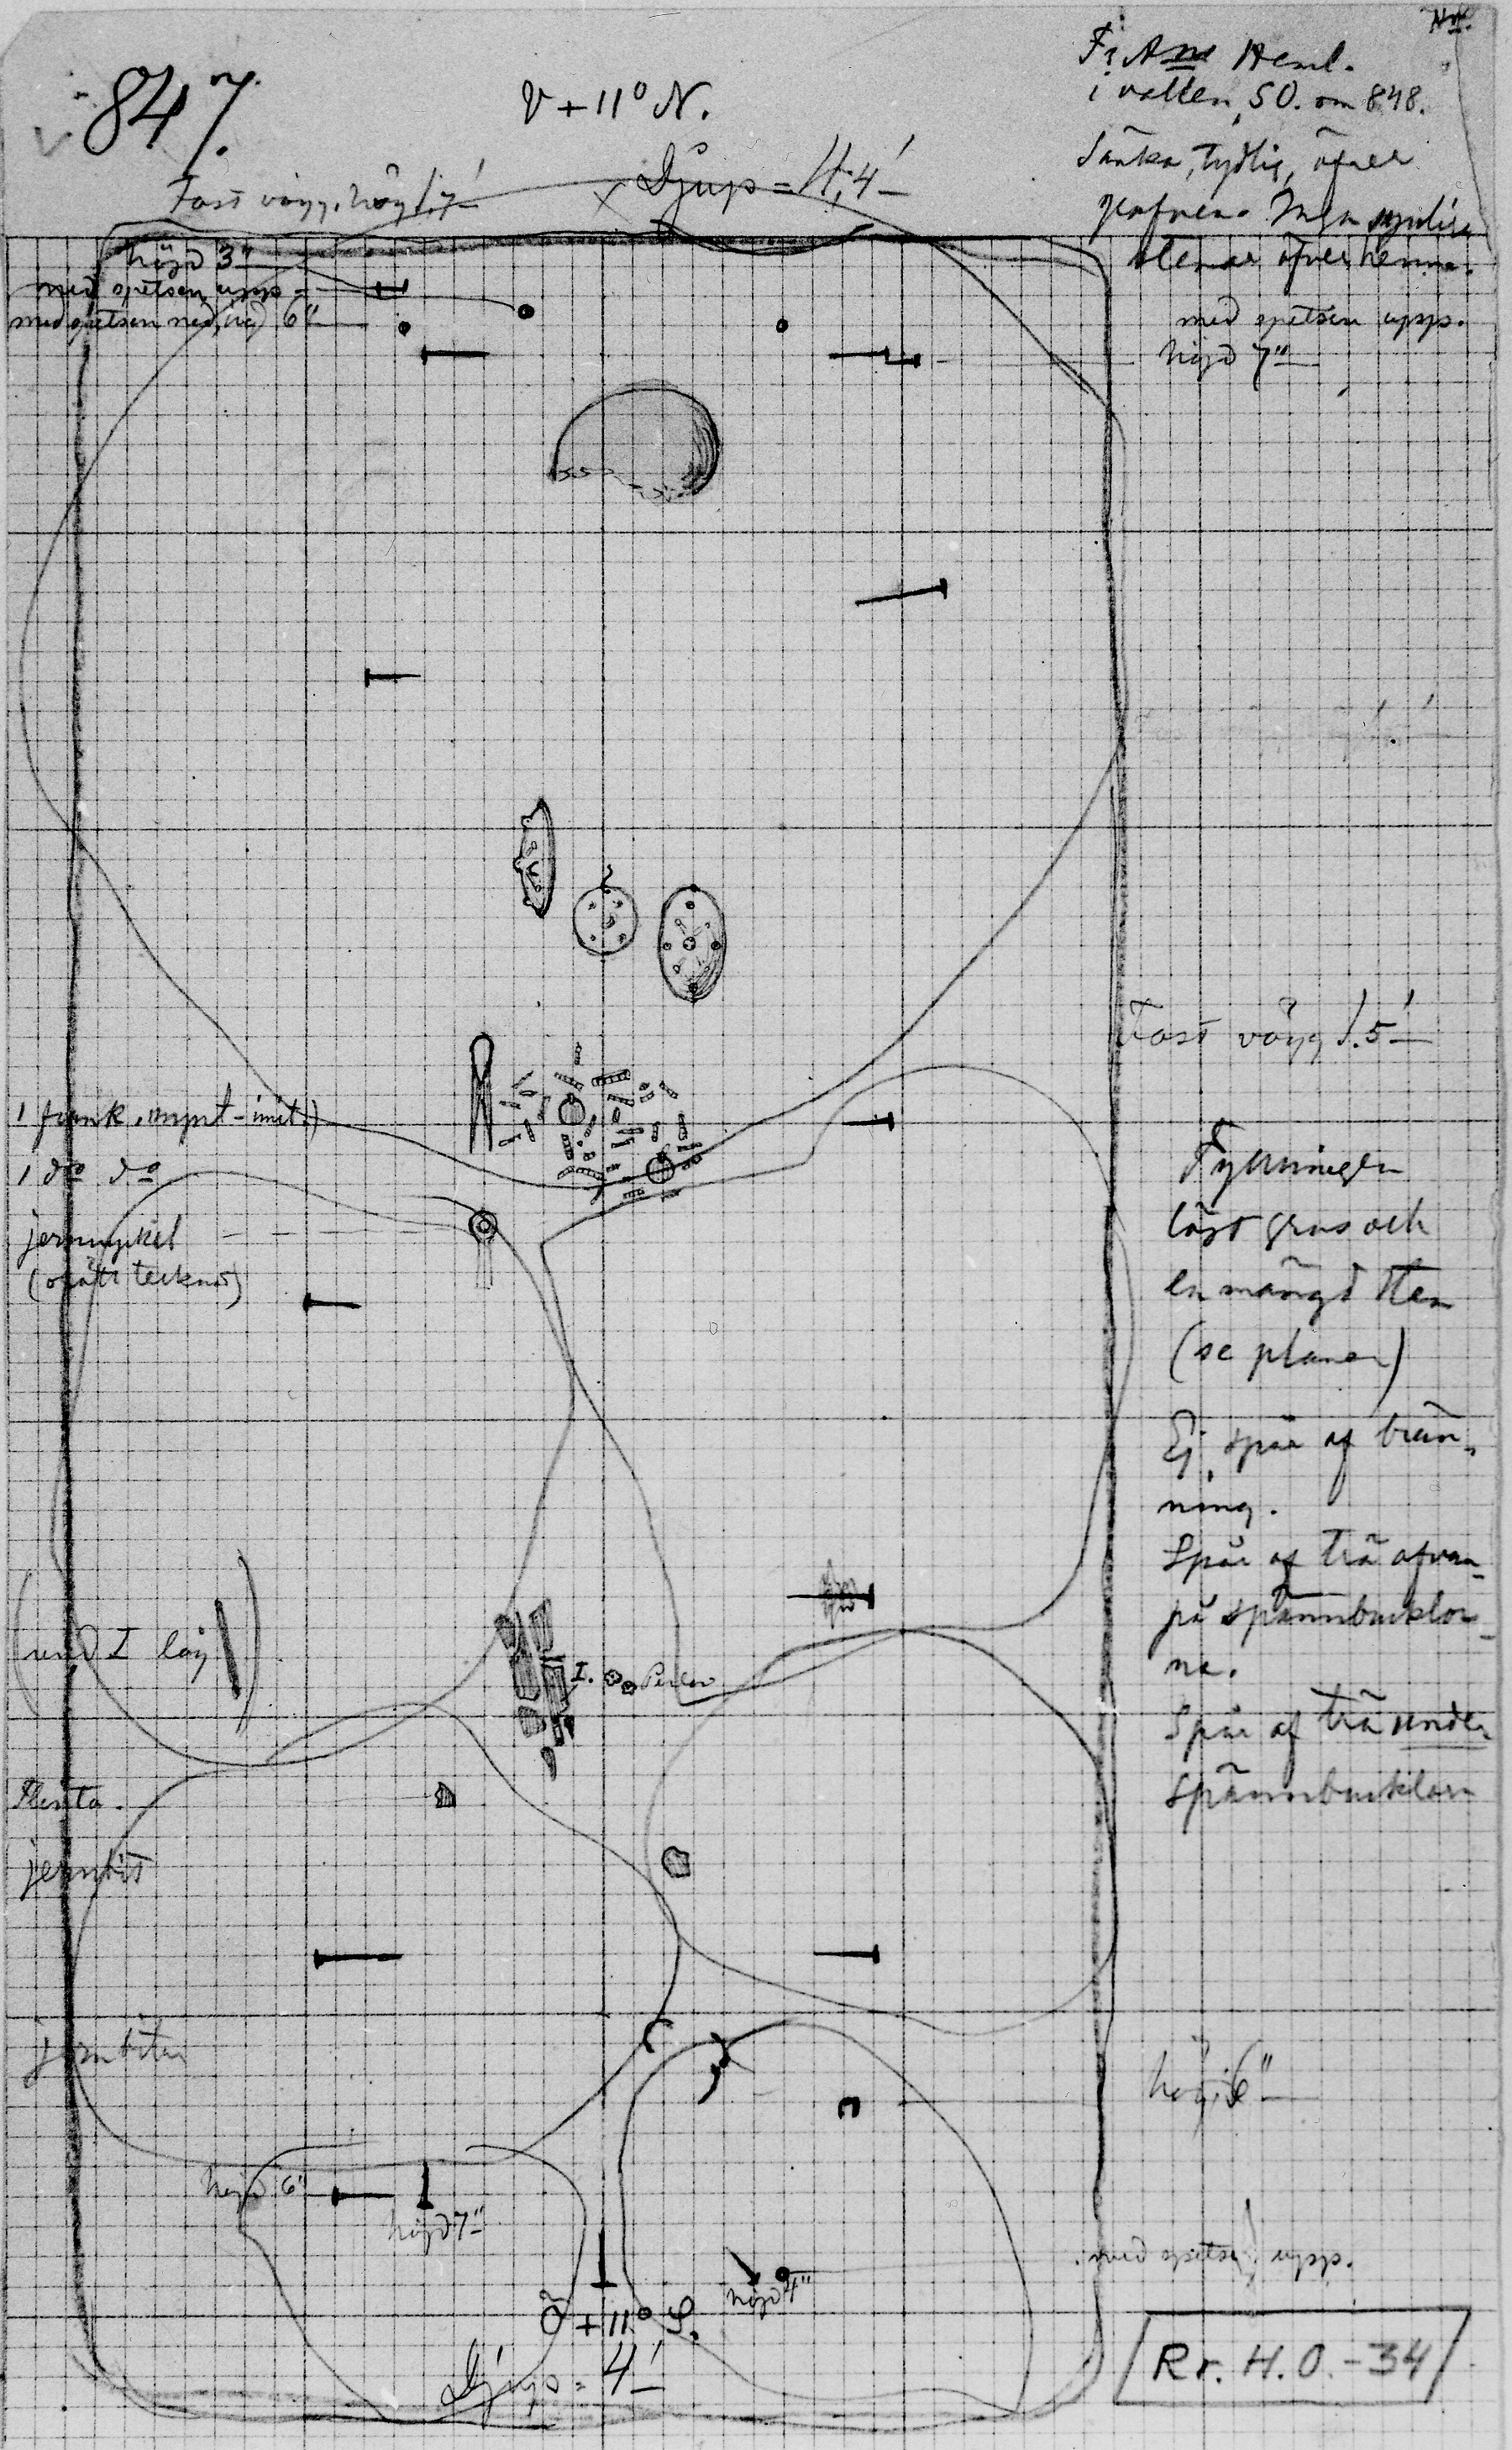 847.
V + 11° N.
Djup = 4,4'
i vallen, SO. om 848.
Sänka, tydlig, öfver
grafven. Inga synliga
stenar öfver henne.
Fast vägg, hög 1,7'
höjd 3"
med spetsen upp
med spetsen ned, höjd 6"
med spetsen upp.
höjd 7"
Fast vägg 1.5'
1 frank. mynt-imit.)
1 do do
jernnyckel
(orätt tecknad)
Fyllningen
löst grus och
en mängd sten
(se planen)
Ej spår af brän-
ning.
Spår af trä ofvan-
på spännbucklor-
na.
Spår af trä under
spännbucklorna
(und. I låg)
I. Perlor
Flinta.
jernbit
jernbitar
höjd 6"
höjd 6"
höjd 7"
med spetsen upp.
höjd 4"
Ö + 11° S.
Djup = 4'
Rr. H. O. - 34